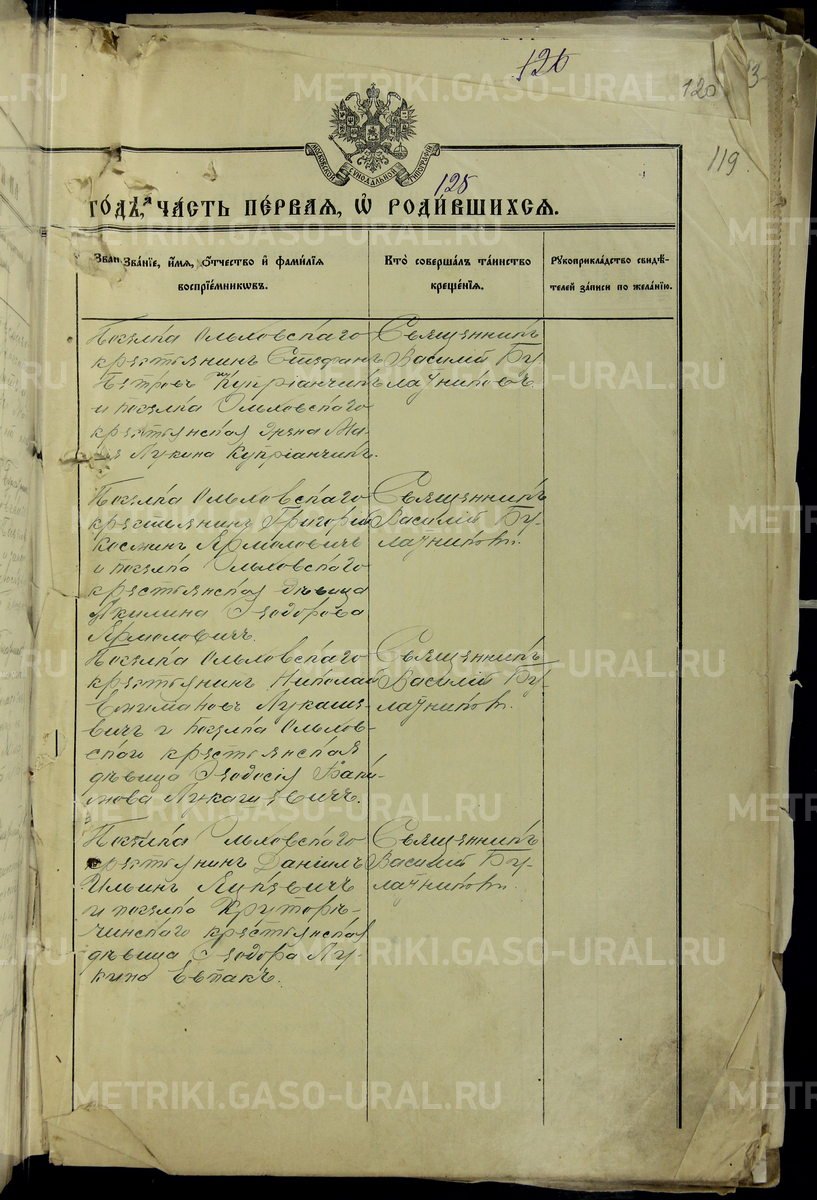 126
120
3
119
МОСКОВСКОЙ СѴНОДАЛЬНОЙ ТИПОГРАФІИ
125
ГОДѢ, ЧАСТЬ ПЕ́РВАЯ, Ѡ҆ РОДИ́ВШИХСЯ.
Зва́нїе, и҆́мѧ, ѻ҆́тчество и҆ фами́лїѧ
воспрїе́мникѡвъ.
Кто̀ соверша́лъ та́инство
креще́нїѧ.
Рꙋкоприкла́дство свидѣ́-
телей за́писи по жела́нїю.
Поселка Ольховскаго
крестьянинъ Стефанъ
Петровъ Купріянчикъ
и поселка Ольховскаго
крестьянская жена Ма-
Лукина Купріянчикъ.
Священникъ
Василій Бу-
латниковъ.
Поселка Ольховскаго
крестьянинъ Григорій
Косминъ Ярмоловичъ
и поселка Ольховскаго
крестьянская дѣвица
Акилина Ѳеодорова
Ярмоловичъ.
Священникъ
Василій Бу-
латниковъ.
Поселка Ольховскаго
крестьянинъ Николай
Лукаше-
вичъ и поселка Ольхов-
скаго крестьянская
дѣвица Ѳеодосія
Лукашевичъ.
Священникъ
Василій Бу-
латниковъ.
Поселка Ольховскаго
крестьянинъ Даніилъ
Ильинъ Яцкевичъ
и поселка Круторѣ-
чинскаго крестьянская
дѣвица Ѳеодора Лу-
кина Евпакъ.
Священникъ
Василій Бу-
латниковъ.
METRIKI.GASO-URAL.RU